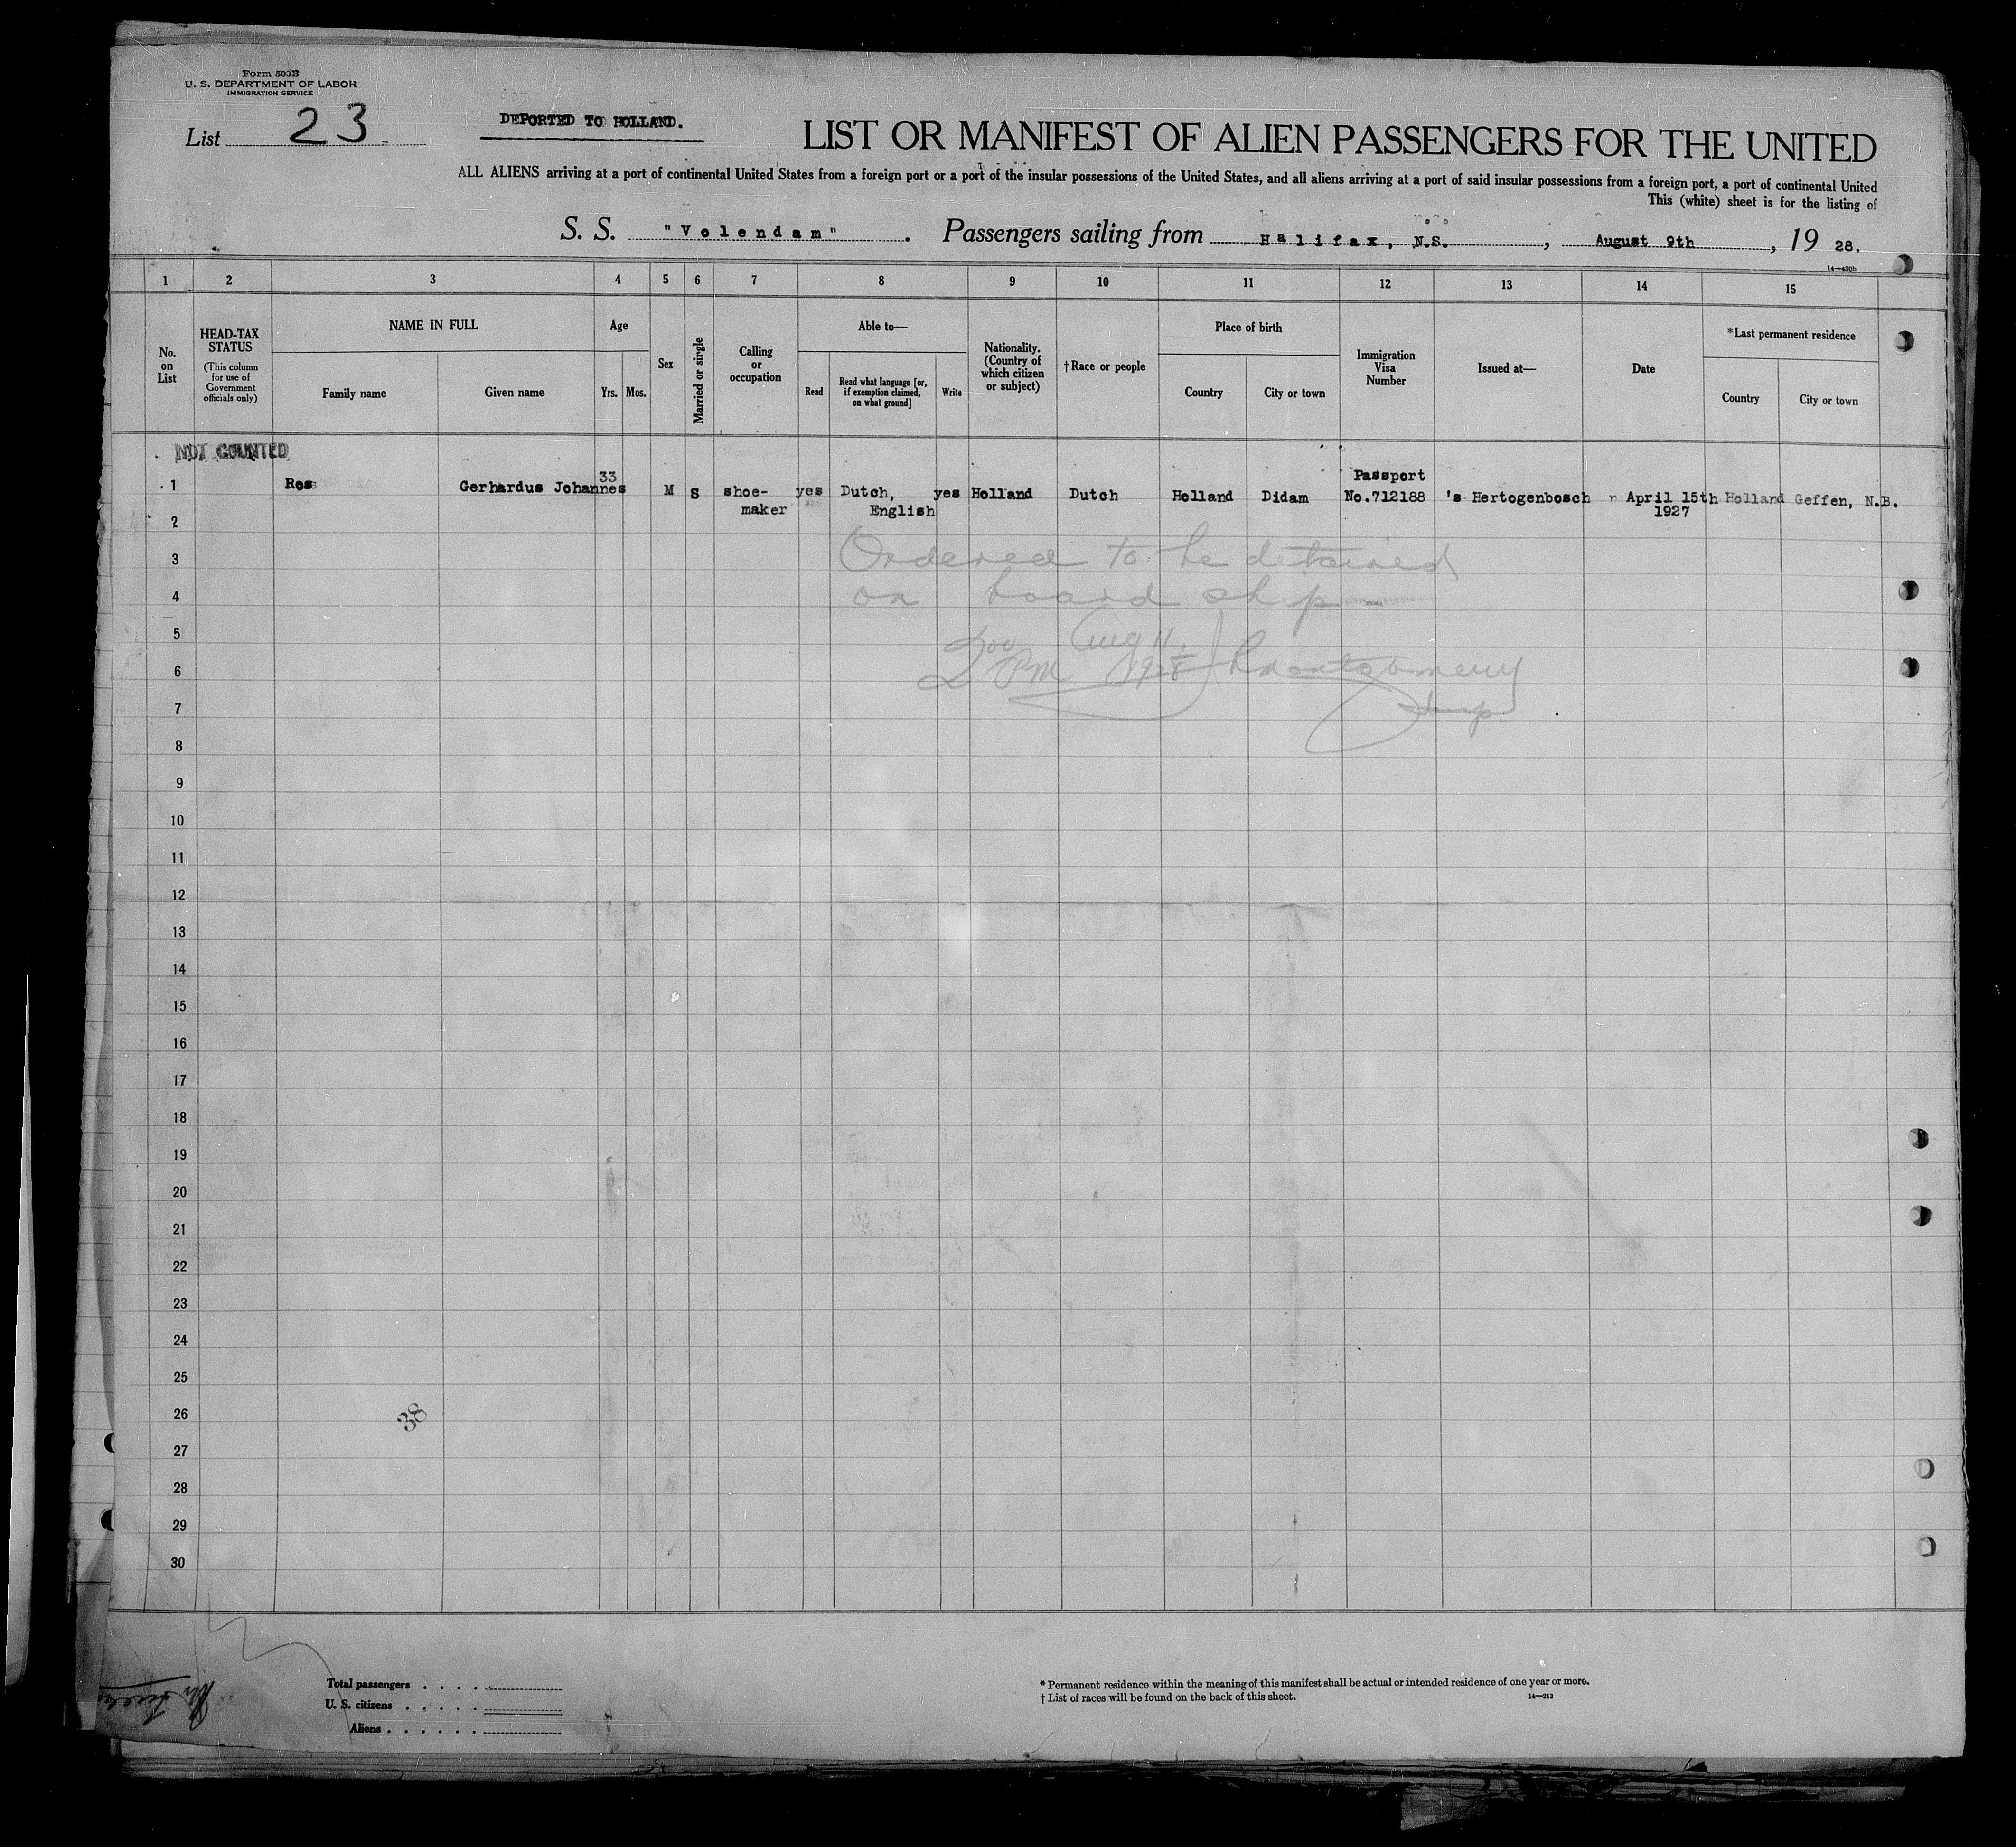 Form 500B
U. S. DEPARTMENT OF LABOR
IMMIGRATION SERVICE
List 23
DEPORTED TO HOLLAND.
LIST OR MANIFEST OF ALIEN PASSENGERS FOR THE UNITED
ALL ALIENS arriving at a port of continental United States from a foreign port or a port of the insular possessions of the United States, and all aliens arriving at a port of said insular possessions from a foreign port, a port of continental United
This (white) sheet is for the listing of
S. S. "Volendam". Passengers sailing from Halifax, N.S., August 9th, 19 28.
1 2 3 4 5 6 7 8 9 10 11 12 13 14 15
No. on List
HEAD-TAX STATUS
(This column for use of Government officials only)
NAME IN FULL
Family name
Given name
Age
Yrs. Mos.
Sex
Married or single
Calling or occupation
Able to—
Read
Read what language [or, if exemption claimed, on what ground]
Write
Nationality. (Country of which citizen or subject)
†Race or people
Place of birth
Country
City or town
Immigration Visa Number
Issued at—
Date
*Last permanent residence
Country
City or town
NOT COUNTED
1 Ros Gerhardus Johannes 33 M S shoe-maker yes Dutch, English yes Holland Dutch Holland Didam Passport No.712188 's Hertogenbosch April 15th 1927 Holland Geffen, N.B.
2
3
Ordered to be detained
4
on board ship
5
200 Aug 11,
6
PM 1928 Montgomery
7
Insp
8
9
10
11
12
13
14
15
16
17
18
19
20
21
22
23
24
25
26
38
27
28
29
30
Total passengers
U. S. citizens
Aliens
* Permanent residence within the meaning of this manifest shall be actual or intended residence of one year or more.
† List of races will be found on the back of this sheet.
14—213